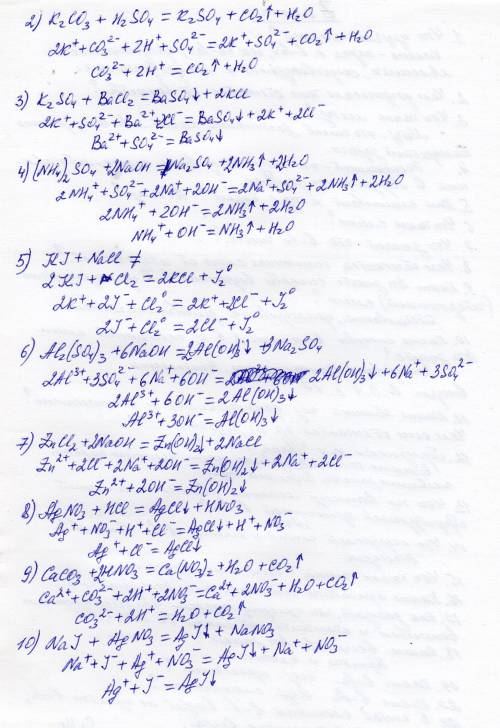 2) K₂CO₃ + H₂SO₄ = K₂SO₄ + CO₂↑ + H₂O
2K⁺ + CO₃²⁻ + 2H⁺ + SO₄²⁻ = 2K⁺ + SO₄²⁻ + CO₂↑ + H₂O
CO₃²⁻ + 2H⁺ = CO₂↑ + H₂O
3) K₂SO₄ + BaCl₂ = BaSO₄↓ + 2KCl
2K⁺ + SO₄²⁻ + Ba²⁺ + 2Cl⁻ = BaSO₄↓ + 2K⁺ + 2Cl⁻
Ba²⁺ + SO₄²⁻ = BaSO₄↓
4) (NH₄)₂SO₄ + 2NaOH = Na₂SO₄ + 2NH₃↑ + 2H₂O
2NH₄⁺ + SO₄²⁻ + 2Na⁺ + 2OH⁻ = 2Na⁺ + SO₄²⁻ + 2NH₃↑ + 2H₂O
2NH₄⁺ + 2OH⁻ = 2NH₃↑ + 2H₂O
NH₄⁺ + OH⁻ = NH₃↑ + H₂O
5) KJ + NaCl ≠
2KJ + Cl₂ = 2KCl + J₂⁰
2K⁺ + 2J⁻ + Cl₂⁰ = 2K⁺ + 2Cl⁻ + J₂⁰
2J⁻ + Cl₂⁰ = 2Cl⁻ + J₂⁰
6) Al₂(SO₄)₃ + 6NaOH = 2Al(OH)₃↓ + 3Na₂SO₄
2Al³⁺ + 3SO₄²⁻ + 6Na⁺ + 6OH⁻ = 2Al(OH)₃↓ + 6Na⁺ + 3SO₄²⁻
2Al³⁺ + 6OH⁻ = 2Al(OH)₃↓
Al³⁺ + 3OH⁻ = Al(OH)₃↓
7) ZnCl₂ + 2NaOH = Zn(OH)₂↓ + 2NaCl
Zn²⁺ + 2Cl⁻ + 2Na⁺ + 2OH⁻ = Zn(OH)₂↓ + 2Na⁺ + 2Cl⁻
Zn²⁺ + 2OH⁻ = Zn(OH)₂↓
8) AgNO₃ + HCl = AgCl↓ + HNO₃
Ag⁺ + NO₃⁻ + H⁺ + Cl⁻ = AgCl↓ + H⁺ + NO₃⁻
Ag⁺ + Cl⁻ = AgCl↓
9) CaCO₃ + 2HNO₃ = Ca(NO₃)₂ + H₂O + CO₂↑
Ca²⁺ + CO₃²⁻ + 2H⁺ + 2NO₃⁻ = Ca²⁺ + 2NO₃⁻ + H₂O + CO₂↑
CO₃²⁻ + 2H⁺ = H₂O + CO₂↑
10) NaJ + AgNO₃ = AgJ↓ + NaNO₃
Na⁺ + J⁻ + Ag⁺ + NO₃⁻ = AgJ↓ + Na⁺ + NO₃⁻
Ag⁺ + J⁻ = AgJ↓